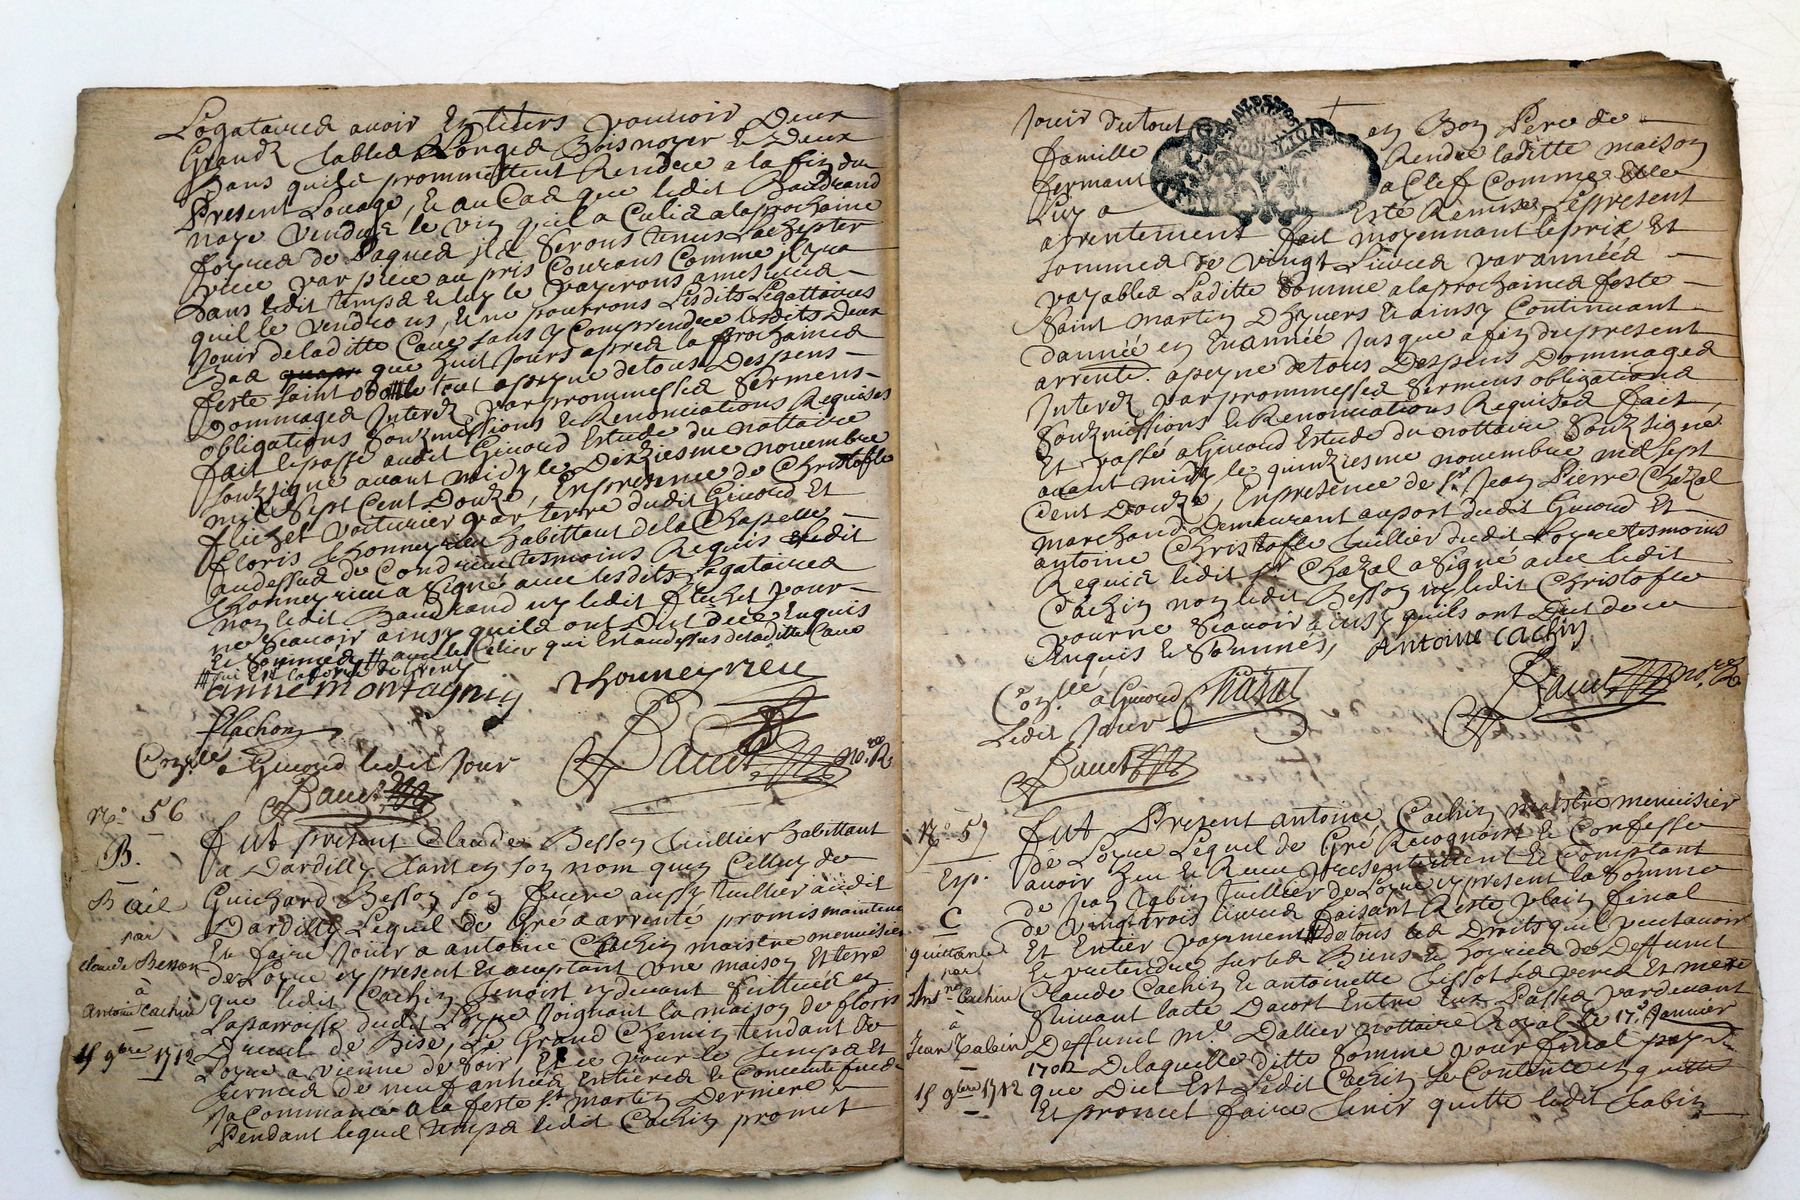 Legataires avoir Entiers pouvoir Deux
Grands tables Longes Bois noyer & Deux
Bans quils promettent Rendre a la fin du
Present Louage, & au Cas que ledit Baudrand
naye vendu le vin quil a Culia a la prochaine
foyres de Paques ils Serons tenus Lachepter
piece par piece au pris Courans Comme il
Dans ledit temps & luy le payerons a mesures
quil le vendrons, & ne pourrons Lesdits Legattaires
Jouir de laditte Cave sans y Comprendre lesdits Deux
que huit Jours apres la prochaines
feste Saint le tout a peyne de tous Despens
Dommages Interez par prommesses Sermens
obligations Soubzmissions & Renonciations Requises
fait & passé audit Givord Estude du nottaire
Soubzsigne avant midy le Dixiesme novembre
mil Sept Cent Douze, En presence de Christofle
flichet voiturier par terre dudit Givord Et
floris thonneyrieu habittant de la Chapelle
audessus de Condrieu tesmoins Requis & ledit
thonneyrieu a Signé avec lesdits Legataires
non ledit Baudrand ny ledit flichet pour
ne Scavoir ainsy quils ont Dit de ce Enquis
& Sommés # avec le Celier qui Est audessus de laditte Cave
anne montagnin thonneyrieu
flachon Bauet no.re R.
Con.lle a Givord ledit Jour
Bauet
No. 56
B.
Bail
par
Claude Besson
a
Antoine Cachin
15 9bre 1712
fut present Claude Besson tuillier habittant
a Dardilly tant en son nom que Celluy de
Guichard Besson son frere aussy tuillier audit
Dardilly Lequel de Gré a arrenté promis maintenir
Et faire Jouir a antoine Cachin maistre menuisier
de Loyre cy present & acceptant une maison Et terre
que ledit Cachin Jouist cy devant Scittués en
Laparroisse dudit Loyre Joignant la maison de floris
de Bise, Le Grand Chemin tendant de
Loyre a vienne de Soir & ce pour le temps Et
termes de neuf années Entieres & Consecutives
Ja Commancé a la feste St martin Derniere &
Pendant lequel temps ledit Cachin promet
Jouir du tout en Bon Pere de
famille Rendre laditte maison
fermant a Clef Comme Elle
Luy a Esté Remise, Lepresent
arrentement fait moyennant le prix Et
sommes de vingt Livres par années
payables Laditte Somme a la prochaines feste
Saint martin Dhyvers & ainsy Continuant
dannée en En année Jusque a fin du present
arrente. a peyne de tous Despens Dommages
Interez par prommesses Sermens obligations
Soubzmissions & Renonciations Requises fait
Et passé a Givord Estude du nottaire Soubzsigne
avant midy le quinziesme novembre mil Sept
Cent Douze, En presence de Sr. Jean Pierre Chazal
marchand Demeurant au port dudit Givord Et
antoine Christofle tuillier dudit Loyre tesmoins
Requis ledit Sr Chazal a Signé avec ledit
Cachin non ledit Besson ny ledit Christofle
pour ne Scavoir ainsy quils ont Dit de ce
Enquis & Sommés, Antoine Cachin
Con.lle a Givord Chazal Bauet no.re R.
Ledit Jour
Bauet
No. 57
Exp.
C
quittance
par
Ant.ne Cachin
a
Jean Tabin
15 9bre 1712
fut Present antoine Cachin maistre menuisier
de Loyre Lequel de Gré Recognoist & Confesse
avoir heu & Receu presentement & Comptant
de Jean Tabin tuillier de Loyre cy present la Somme
de vingt trois livres faisant Reste plain final
Et Entier payement # de tous les Droits quil peut avoir
& pretendre sur les Biens & hoyries de Deffunt
Claude Cachin & antoinette tissot ses peres Et mere
Suivant lacte Dacort Entre Eux Passé pardevant
Deffunt me. Dallier nottaire Royal le 17e. Janvier
1702 De laquelle ditte Somme pour final paye
que Dit Est Ledit Cachin se Contente en quitte
Et promet faire tenir quitte ledit tabin